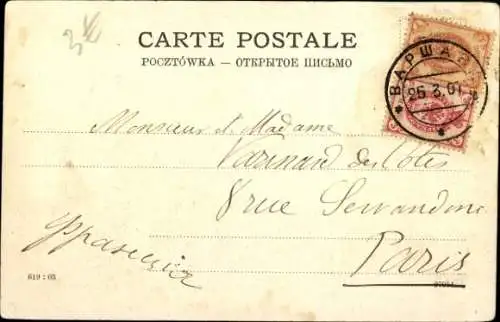 3 K
CARTE POSTALE
POCZTÓWKA — ОТКРЫТОЕ ПИСЬМО
ВАРШАВА
25.3.07
Monsieur et Madame
Varinard des Côtes
8 rue Servandoni
Paris
Франція
619 : 03